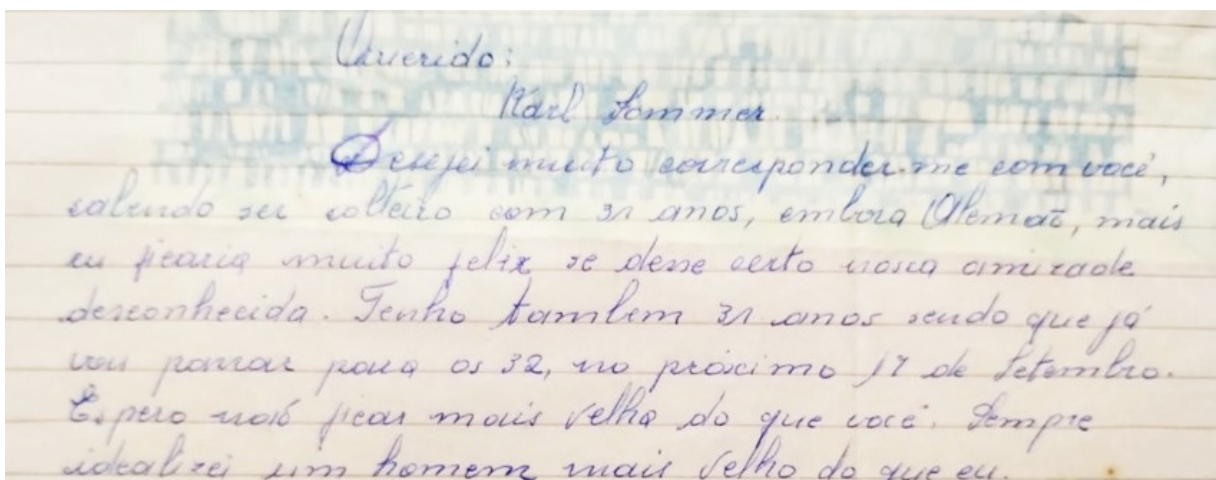 Querido:
Karl Sommer.
Desejei muito corresponder-me com você,
sabendo ser solteiro com 31 anos, embora Alemaõ, mais
eu ficaria muito felix se desse certo nossa amizade
desconhecida. Tenho tambem 31 anos sendo que já
vou passar para os 32, no próximo 17 de Setembro.
Espero naõ ficar mais velha do que você. Sempre
idealizei um homem mais velho do que eu.